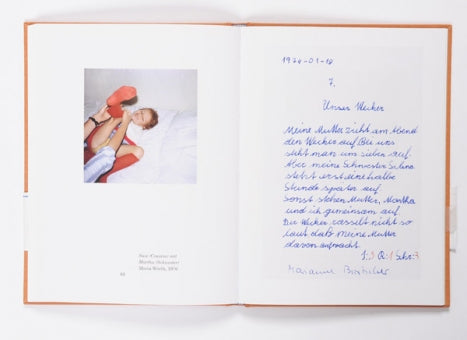 Sara (Cousine) und
Martha (Schwester)
Maria Wörth, 1974
1974-01-18
7.
Unser Wecker
Meine Mutter zieht am Abend
den Wecker auf. Bei uns
steht man um sieben auf.
Aber meine Schwester Silvia
steht erst eine halbe
Stunde später auf.
Sonst stehen Mutter, Martha
und ich gemeinsam auf.
Der Wecker rasselt nicht so
laut daß meine Mutter
davon aufwacht.
Marianne